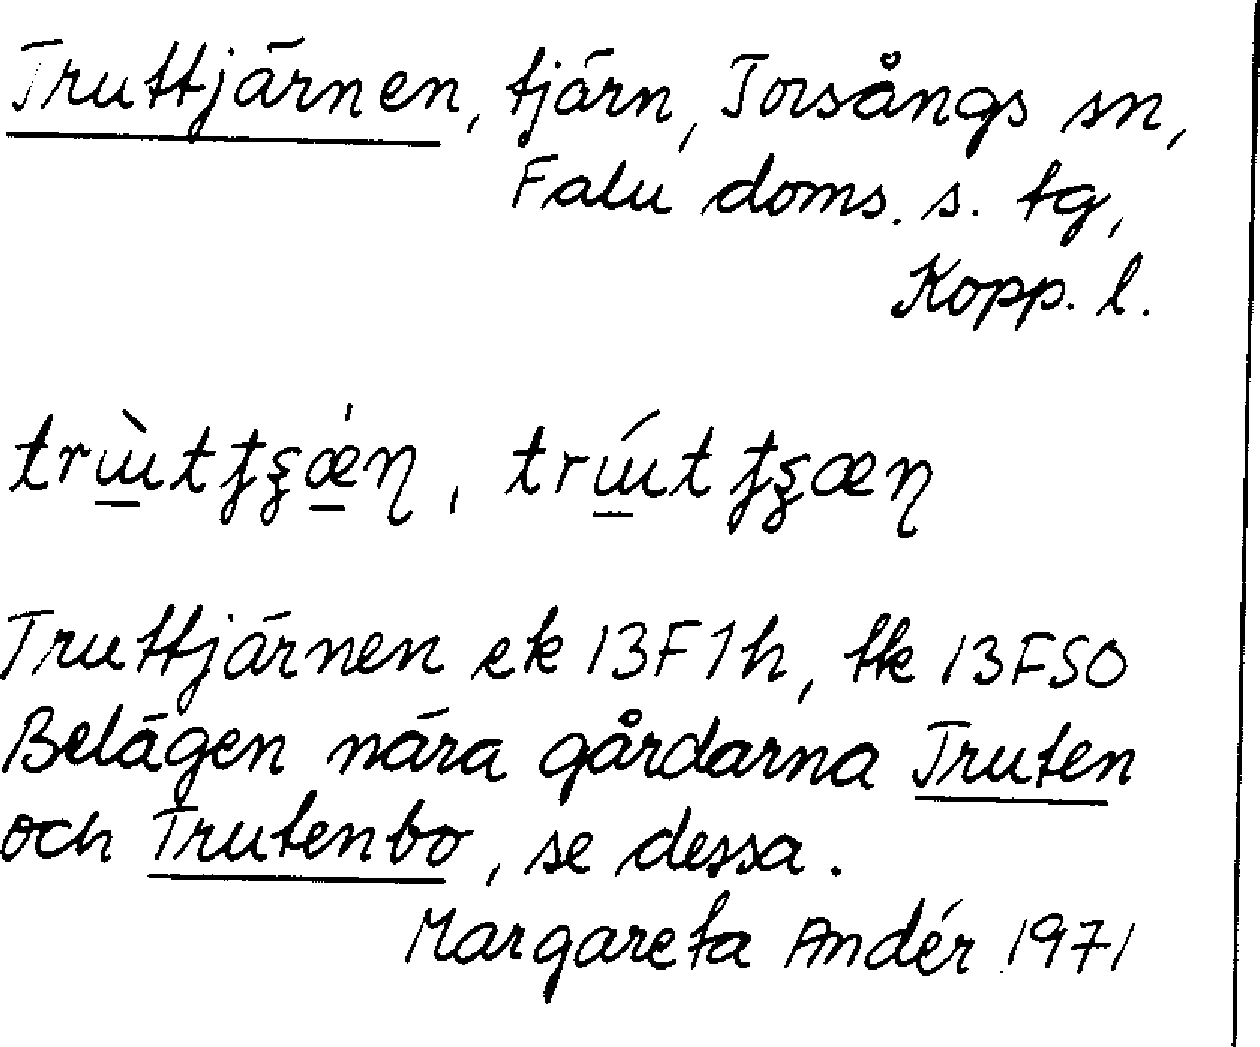 Truttjärnen, tjärn, Torsångs sn,
Falu doms. s. tg,
Kopp. l.
Truttjärnen ek 13F1h, tk 13FSO
Belägen nära gårdarna Truten
och Trutenbo, se dessa.
Margareta Andér 1971